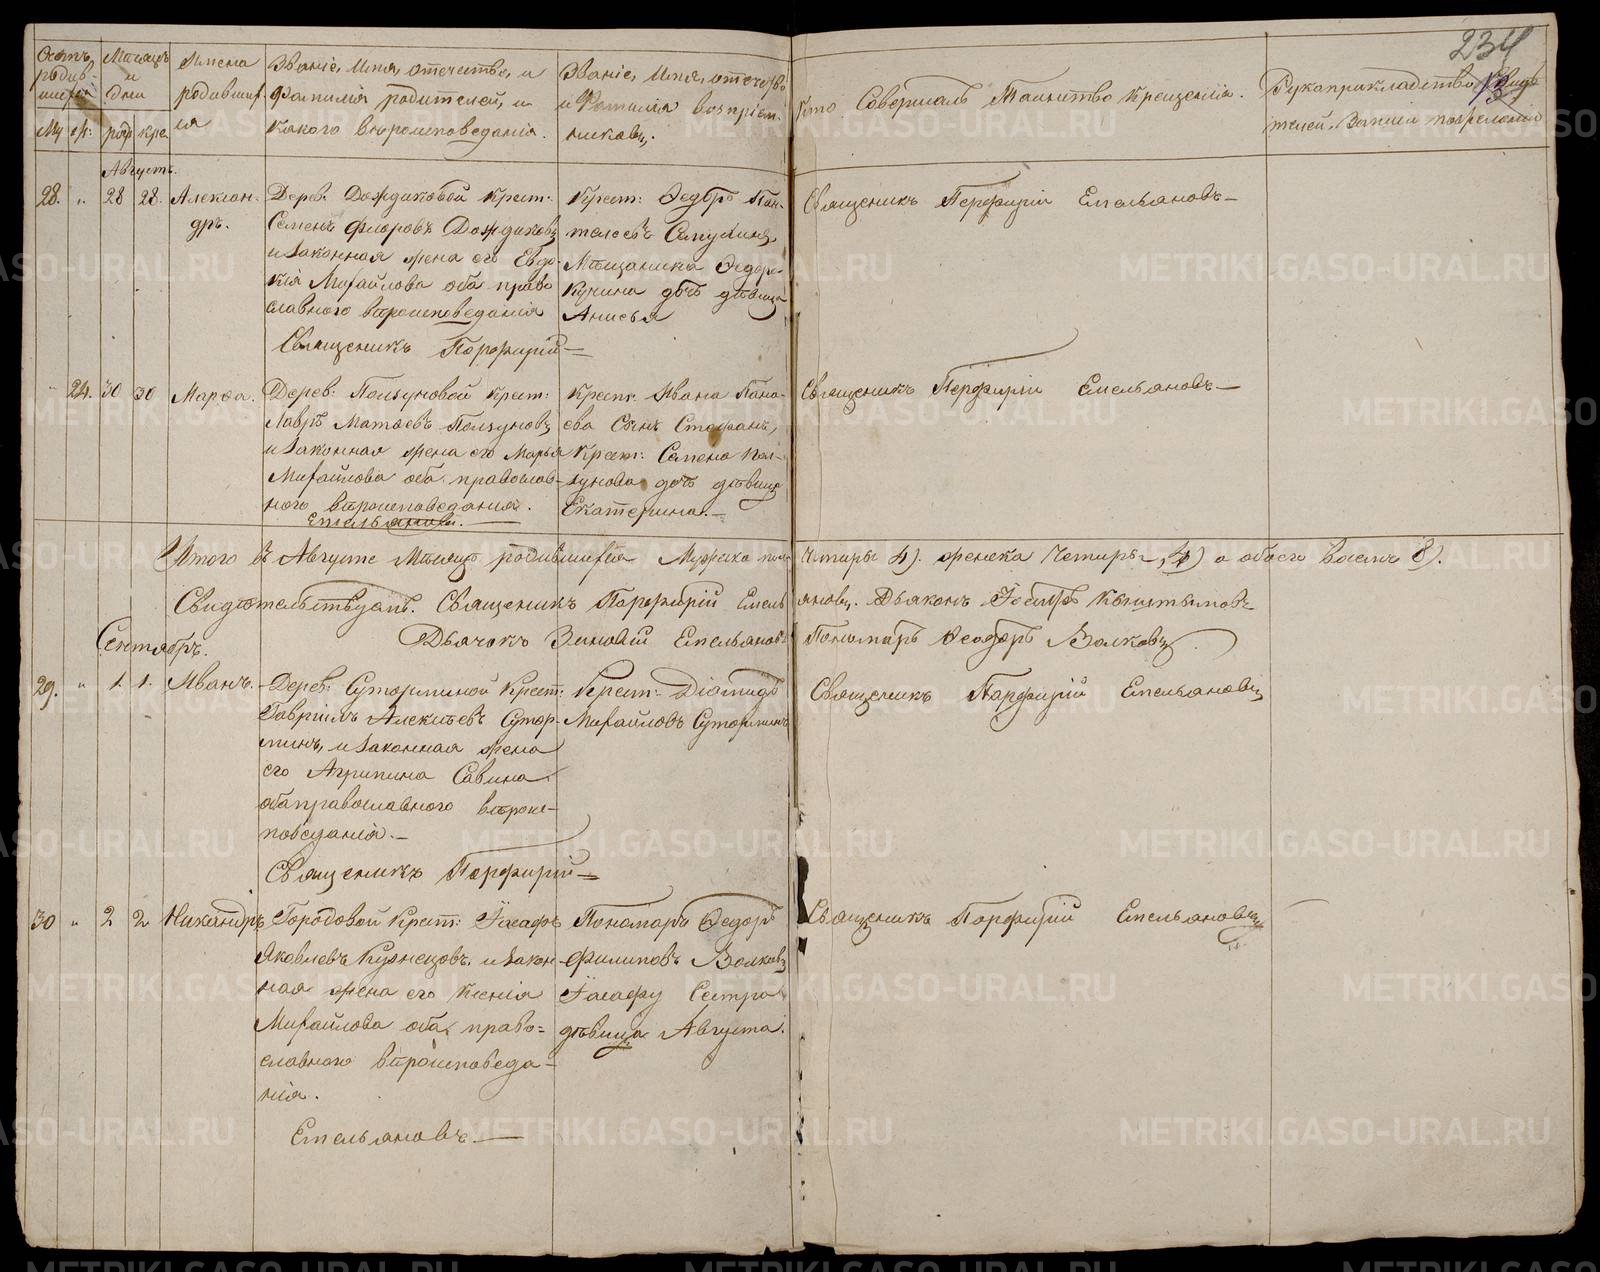 234
Счетъ родив-шихся
Му же:
Мѣсяцъ и дни
рож кре.
Имена родившихся
Званіе, Имя, отечество, и
Фамилія родителей, и
какого вѣроисповеданія.
Званіе, Имя, отечество
и Фамилія воспріем-
никовъ.
Кто Совершалъ Таинство Крещенія.
Рукоприкладство Свидѣ
телей Записи по желанію
Августъ.
28. „ 28 28. Алексан-
дръ.
Дерев. Дождиковой Крест:
Семенъ Флоровъ Дождиковъ
и Законная жена его Евдо-
кія Михайлова оба право
славного вѣроисповеданія
Крест: Ѳедоръ Пан-
телеевъ
Мѣщанина Ѳедора
дочь дѣвица
Анисья
Священикъ Порфирій Емельяновъ
Священикъ Порфирій
„ 24. 30 30 Марѳа.
Дерев: Ползуновой Крест:
Лавръ Матѳеевъ Ползуновъ
и Законная жена его Марья
Михайлова оба православ-
ного вѣроисповеданія.
Крест. Ивана Пана-
ева Сынъ Стефанъ,
Крест: Семена Пол-
зунова дочь дѣвица
Екатерина.
Священикъ Порфирій Емельяновъ
Емельяновъ.
Итого въ Августе Мѣсяцѣ родившихся Мужеска пола Четыре 4). женска Четыре, 4) а обоего восемь 8).
Свидѣтельствуютъ. Священикъ Порфирій Емельяновъ. Дьяконъ
Дьячокъ Зиновій Емельяновъ Пономарь Ѳеодоръ Волковъ
Сентябрь.
29. „ 1. 1. Иванъ.
Дерев: Суторминой Крест:
Гавріилъ Алексѣевъ Сутор-
минъ, и Законная жена
его Агрипина Савина
оба православного вѣроис-
поведанія.
Крест: Діомидъ
Михайловъ Суторминъ
Священикъ Порфирій Емельяновъ
Священикъ Порфирій
30 „ 2 2 Никандръ
Городовой Крест: Іасафъ
Яковлевъ Кузнецовъ. и Закон-
ная жена его Ксенія
Михайлова оба право-
славного вѣроисповеда-
нія.
Пономарь Ѳедоръ
Филиповъ Волковъ
Іасафу Сестра
дѣвица Августа.
Священикъ Порфирій Емельяновъ
Емельяновъ.
METRIKI.GASO-URAL.RU